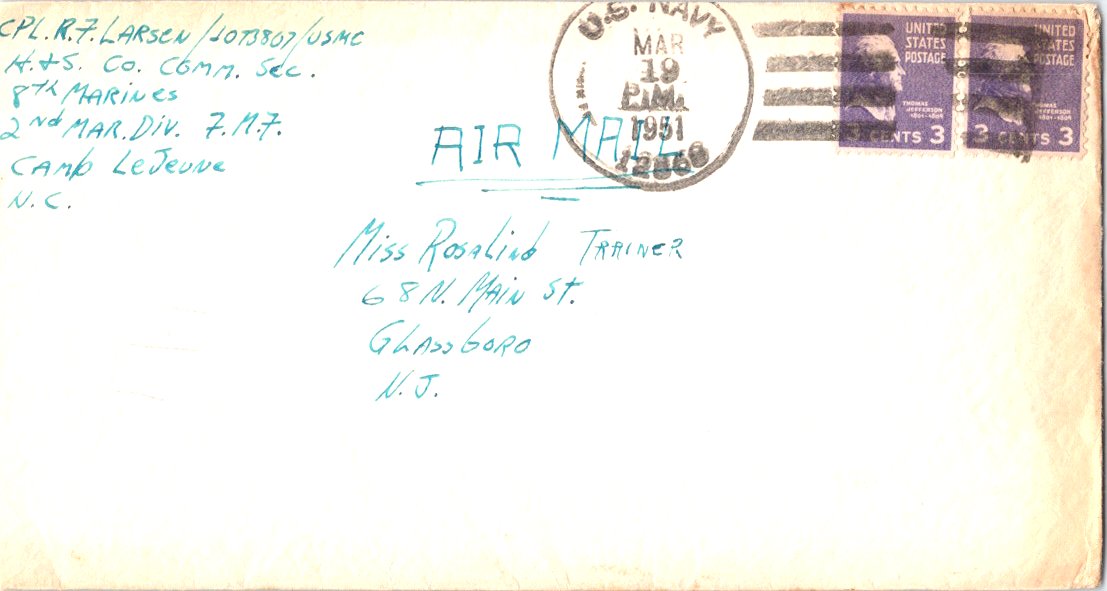 CPL. R.F. LARSEN / 1073807 / USMC
H. & S. Co. COMM. Sec.
8th MARINES
2nd MAR. DIV. F.M.F.
CAMP LeJeune
N.C.
U.S. NAVY
MAR
19
P.M.
1951
AIR MAIL
Miss Rosalind TRAINER
68 N. MAIN St.
GLASSBORO
N.J.
UNITED
STATES
POSTAGE
THOMAS
JEFFERSON
1801-1809
3 CENTS 3
UNITED
STATES
POSTAGE
THOMAS
JEFFERSON
1801-1809
3 CENTS 3